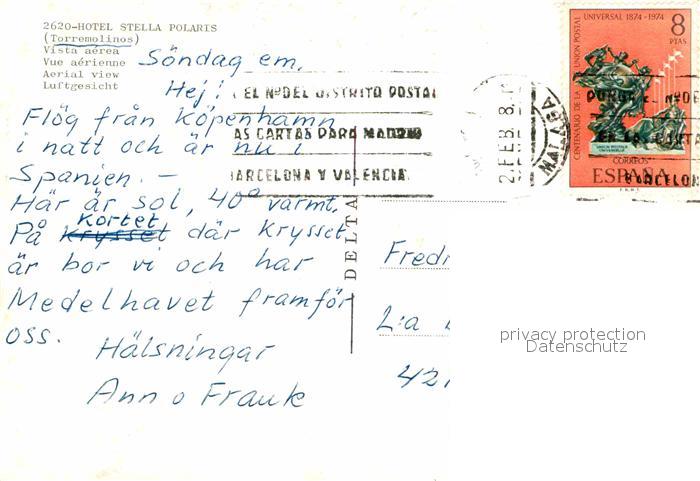 2620-HOTEL STELLA POLARIS
(Torremolinos)
Vista aérea
Vue aérienne
Aerial view
Luftgesicht
Söndag em.
Hej!
Flög från Köpenhamn
i natt och är nu i
Spanien. -
Här är sol, 40° varmt.
På kortet
krysset där krysset
är bor vi och har
Medelhavet framför
oss.
Hälsningar
Ann o Frank
DELTA
EL Nº DEL DISTRITO POSTAL
AS CARTAS PARA MADRID
BARCELONA Y VALENCIA
2. FEB. 8.
MALAGA
UNION POSTAL UNIVERSAL 1874-1974
CENTENARIO DE LA
8
PTAS
CORREOS
ESPAÑA
Fred
L:a
42
privacy protection
Datenschutz